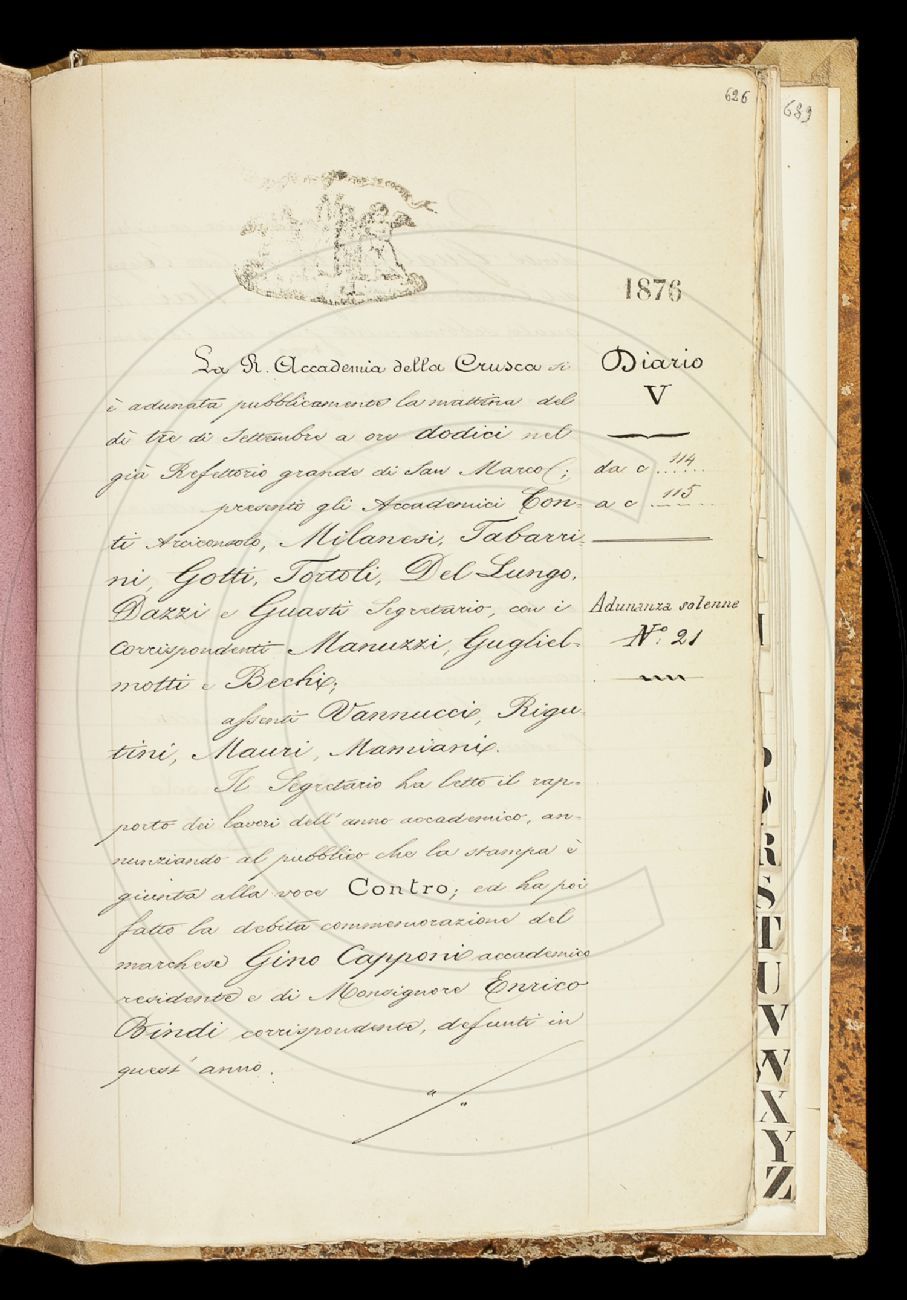 626
689
1876
La R. Accademia della Crusca si
è adunata pubblicamente la mattina del
dì tre di Settembre a ore dodici nel
già Refettorio grande di San Marco;
presenti gli Accademici Con-
ti Arciconsolo, Milanesi, Tabarri-
ni, Gotti, Tortoli, Del Lungo,
Dazzi e Guasti Segretario, con i
corrispondenti Manuzzi, Gugliel-
motti e Bechi;
assenti Vannucci, Rigu-
tini, Mauri, Mamiani.
Il Segretario ha letto il rap-
porto dei lavori dell'anno accademico, an-
nunziando al pubblico che la stampa è
giunta alla voce Contro; ed ha poi
fatto la debita commemorazione del
marchese Gino Capponi accademico
residente e di Monsignore Enrico
Bindi corrispondente, defunti in
quest'anno.
Diario
V
da c. 114
a c. 115
Adunanza solenne
N.° 21
R
S
T
U
V
W
X
Y
Z